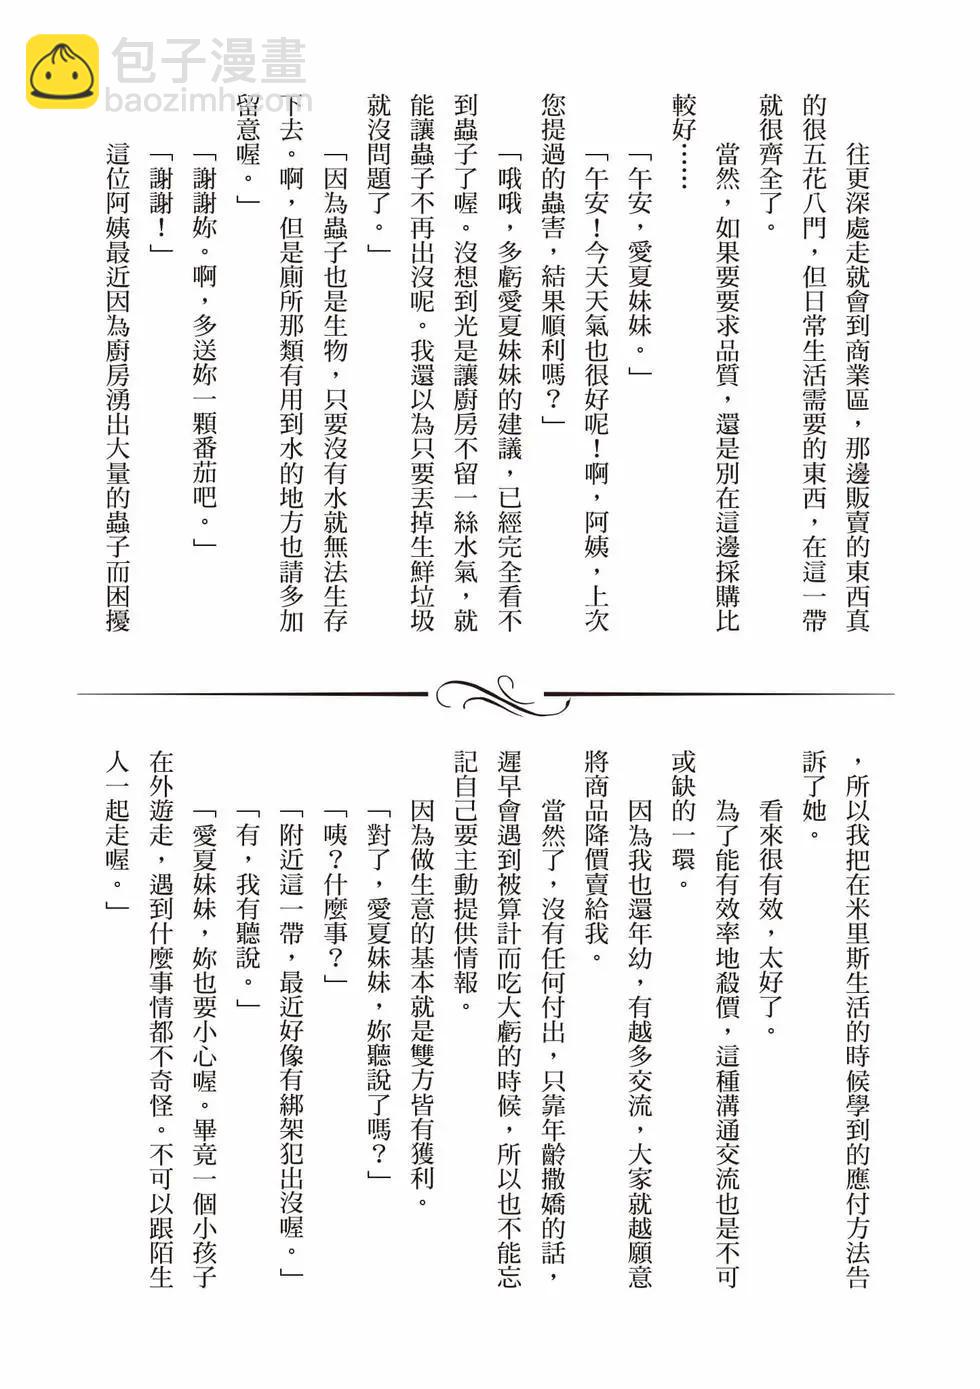 包子漫畫
baozimh.com
往更深處走就會到商業區，那邊販賣的東西真
的很五花八門，但日常生活需要的東西，在這一帶
就很齊全了。
當然，如果要要求品質，還是別在這邊採購比
較好……
「午安，愛夏妹妹。」
「午安！今天天氣也很好呢！啊，阿姨，上次
您提過的蟲害，結果順利嗎？」
「哦哦，多虧愛夏妹妹的建議，已經完全看不
到蟲子了喔。沒想到光是讓廚房不留一絲水氣，就
能讓蟲子不再出沒呢。我還以為只要丟掉生鮮垃圾
就沒問題了。」
「因為蟲子也是生物，只要沒有水就無法生存
下去。啊，但是廁所那類有用到水的地方也請多加
留意喔。」
「謝謝妳。啊，多送妳一顆番茄吧。」
「謝謝！」
這位阿姨最近因為廚房湧出大量的蟲子而困擾
，所以我把在米里斯生活的時候學到的應付方法告
訴了她。
看來很有效，太好了。
為了能有效率地殺價，這種溝通交流也是不可
或缺的一環。
因為我也還年幼，有越多交流，大家就越願意
將商品降價賣給我。
當然了，沒有任何付出，只靠年齡撒嬌的話，
遲早會遇到被算計而吃大虧的時候，所以也不能忘
記自己要主動提供情報。
因為做生意的基本就是雙方皆有獲利。
「對了，愛夏妹妹，妳聽說了嗎？」
「咦？什麼事？」
「附近這一帶，最近好像有綁架犯出沒喔。」
「有，我有聽說。」
「愛夏妹妹，妳也要小心喔。畢竟一個小孩子
在外遊走，遇到什麼事情都不奇怪。不可以跟陌生
人一起走喔。」